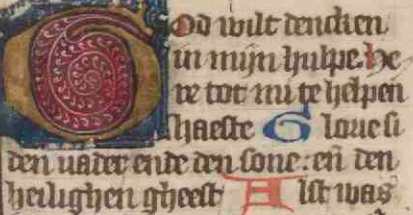 God wilt dencken
in mijn hulpe. he
re tot mi te helpen
haeste Glorie si
den uader ende den sone: en̄ den
heilighen gheest Alst was